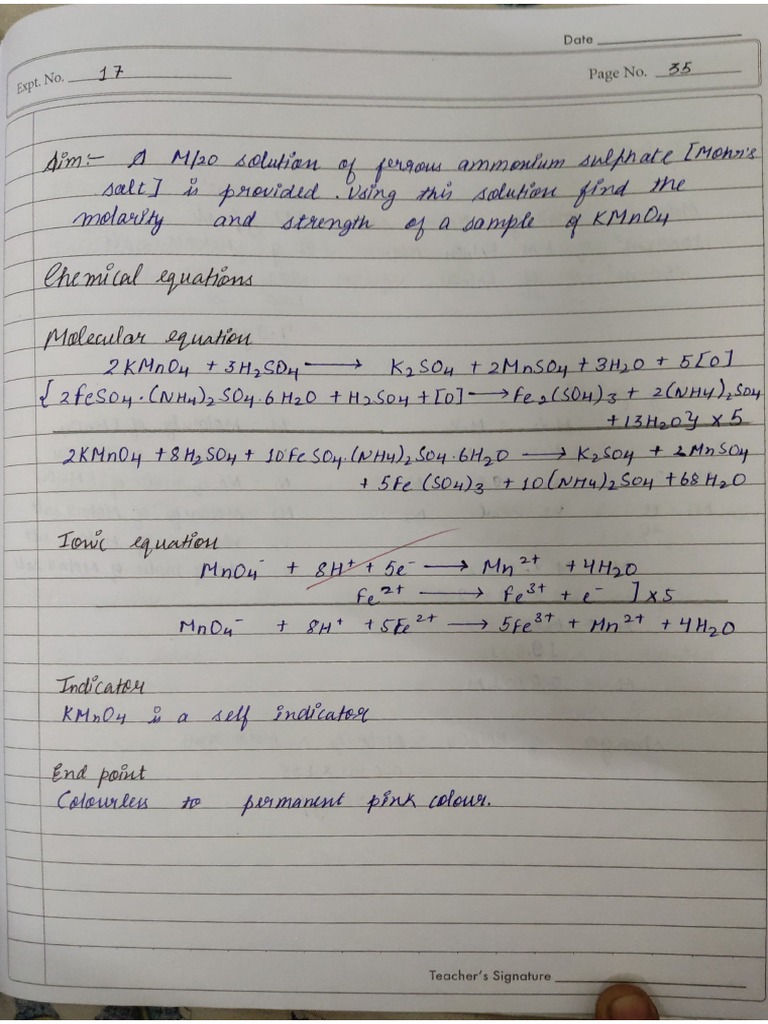 Date
Expt. No. 17
Page No. 35
Aim:- A M/20 solution of ferrous ammonium sulphate [Mohr's
salt] is provided. Using this solution find the
molarity and strength of a sample of KMnO4
Chemical equations
Molecular equation
2KMnO4 + 3H2SO4 ⟶ K2SO4 + 2MnSO4 + 3H2O + 5[O]
{2FeSO4·(NH4)2SO4·6H2O + H2SO4 + [O] ⟶ Fe2(SO4)3 + 2(NH4)2SO4
+ 13H2O} x 5
2KMnO4 + 8H2SO4 + 10FeSO4·(NH4)2SO4·6H2O ⟶ K2SO4 + 2MnSO4
+ 5Fe(SO4)3 + 10(NH4)2SO4 + 68H2O
Ionic equation
MnO4⁻ + 8H⁺ + 5e⁻ ⟶ Mn²⁺ + 4H2O
Fe²⁺ ⟶ Fe³⁺ + e⁻ ] x 5
MnO4⁻ + 8H⁺ + 5Fe²⁺ ⟶ 5Fe³⁺ + Mn²⁺ + 4H2O
Indicator
KMnO4 is a self indicator
End point
Colourless to permanent pink colour.
Teacher's Signature